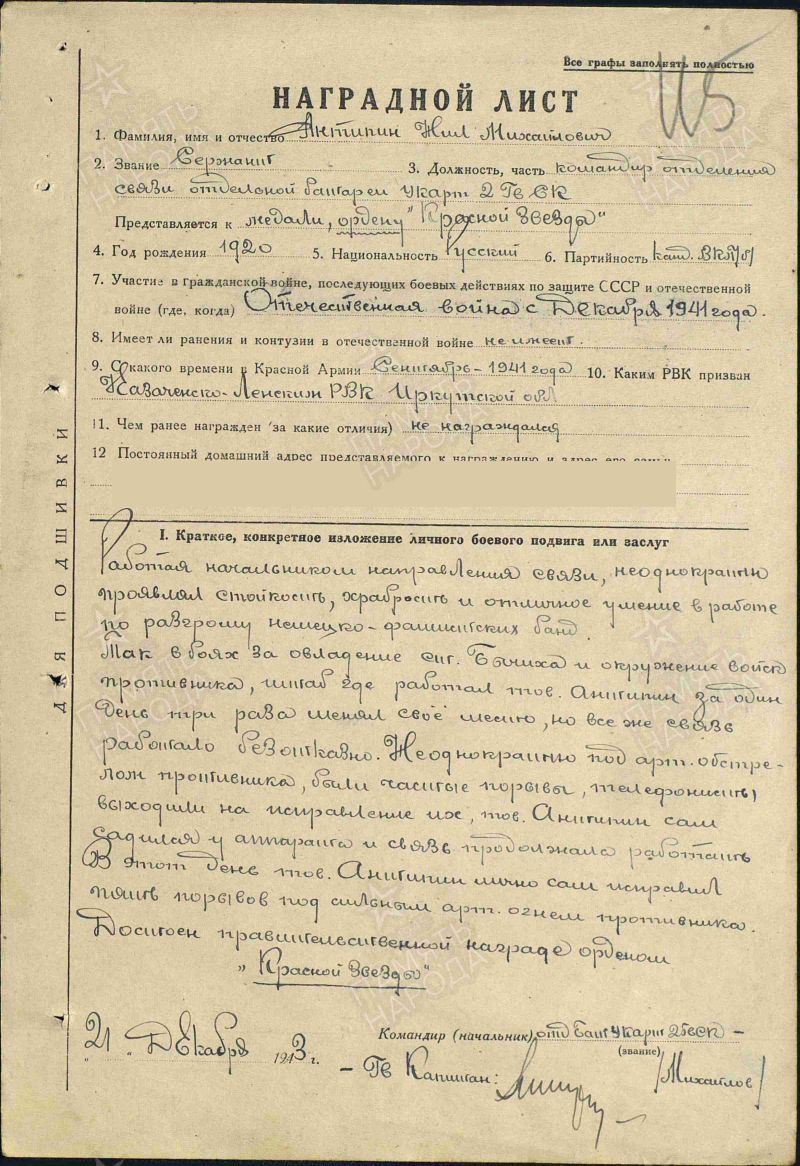 Все графы заполнять полностью
115
НАГРАДНОЙ ЛИСТ
1. Фамилия, имя и отчество Антипин Нил Михайлович
2. Звание Сержант 3. Должность, часть командир отделения
связи отдельной батареи Укарт 2 Гв СК
Представляется к медали, ордену "Красной Звезды"
4. Год рождения 1920 5. Национальность Русский 6. Партийность канд. ВКП/б/
7. Участие в гражданской войне, последующих боевых действиях по защите СССР и отечественной
войне (где, когда) Отечественная война с Декабря 1941 года.
8. Имеет ли ранения и контузии в отечественной войне не имеет.
9. С какого времени в Красной Армии Сентябрь - 1941 года 10. Каким РВК призван
Казаченско-Ленским РВК Иркутской обл
11. Чем ранее награжден (за какие отличия) не награждался
12 Постоянный домашний адрес представляемого к награждению и адрес его семьи
I. Краткое, конкретное изложение личного боевого подвига или заслуг
Работая начальником направления связи, неоднократно
проявлял стойкость, храбрость и отличное умение в работе
по разгрому немецко-фашистских банд.
Так в боях за овладение ст. Бычиха и окружение войск
противника, штаб где работал тов. Антипин за один
день три раза менял своё место, но все же связь
работало безотказно. Неоднократно под арт. обстре-
лом противника, были частые порывы, телефонисты
выходили на исправление их, тов. Антипин сам
садился у аппарата и связь продолжала работать
В этот день тов. Антипин лично сам исправил
пять порывов под сильным арт. огнем противника.
Достоен правительственной награде орденом
"Красной Звезды"
21 Декабря 1943 г.
Командир (начальник) отд Бат Укарт 2 Гв СК -
(звание)
- Гв Капитан: /Михайлов/
ДЛЯ ПОДШИВКИ